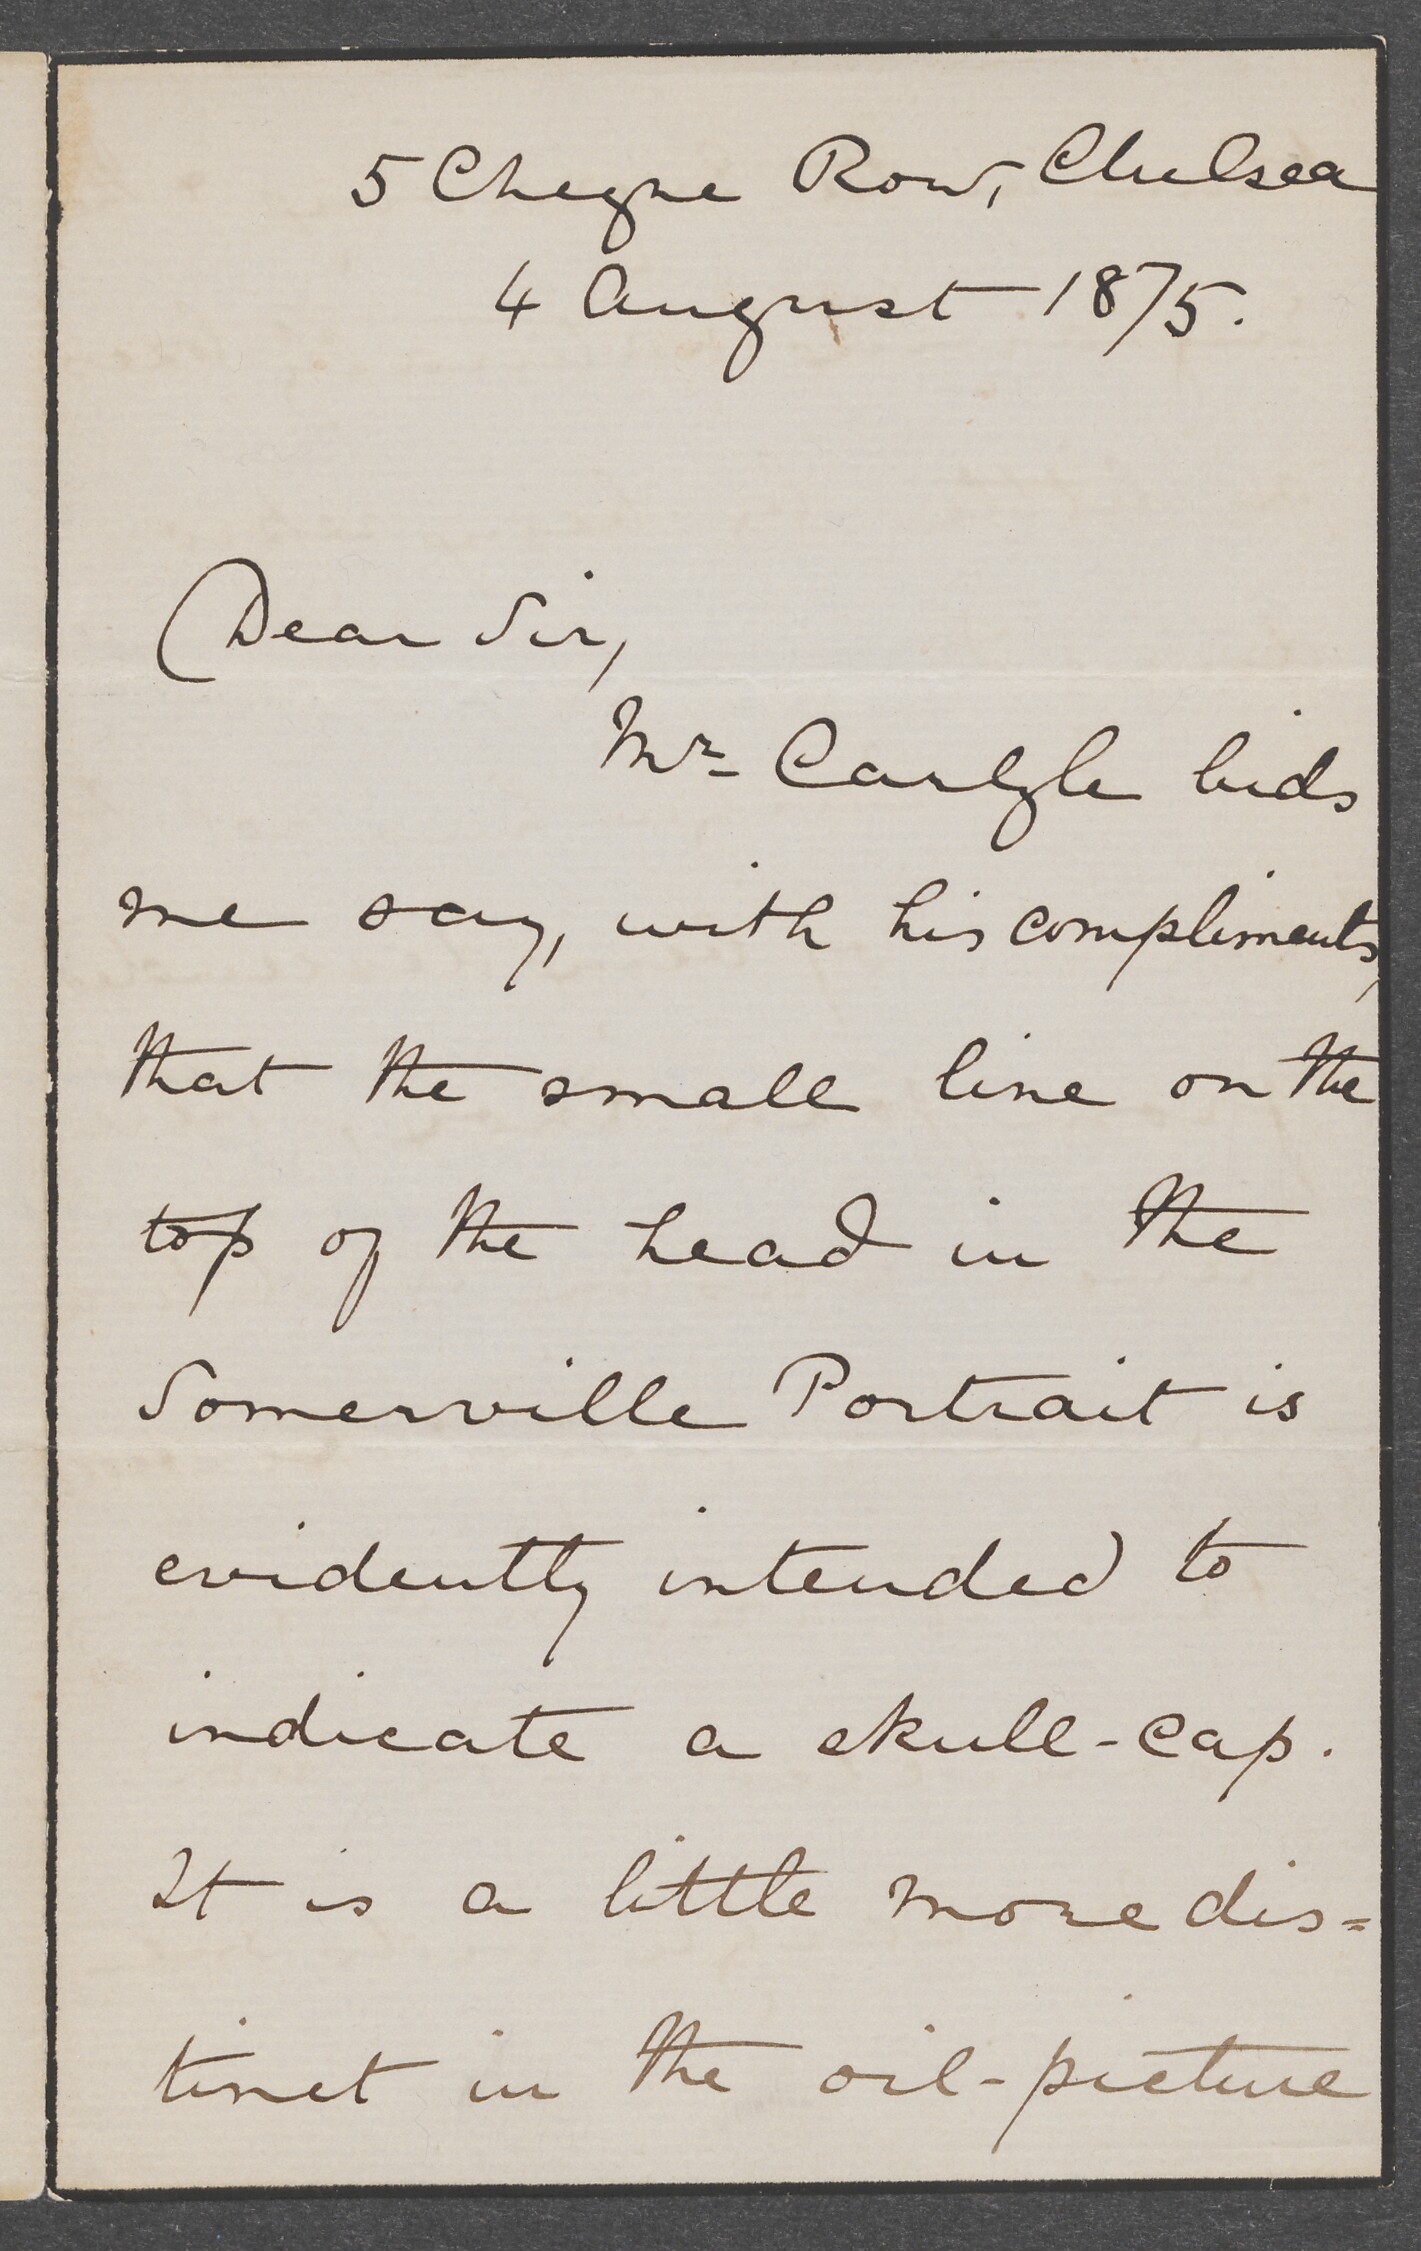 5 Cheyne Row, Chelsea
4 August 1875.
Dear Sir,
Mr. Carlyle bids
me say, with his compliments,
that the small line on the
top of the head in the
Somerville Portrait is
evidently intended to
indicate a skull-cap.
It is a little more dis=
tinct in the oil-picture